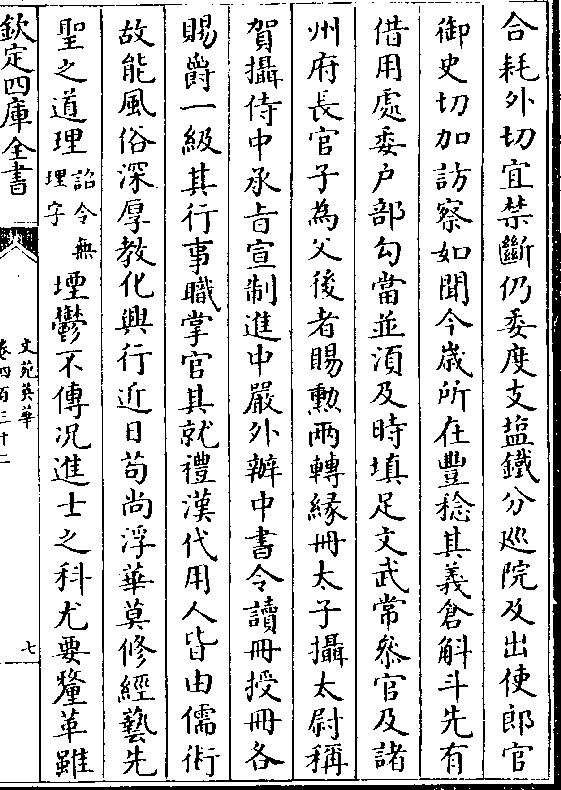 合耗外切宜禁斷仍委度支塩鐵分廵院及出使郎官
御史切加訪察如聞今嵗所在豐稔其義倉斛斗先有
借用處委戸部勾當並湏及時填足文武常叅官及諸
州府長官子為父後者賜勲兩轉縁冊太子攝太尉稱
賀攝侍中承㫖宣制進中嚴外辦中書令讀冊授冊各
賜爵一級其行事職掌官其就禮漢代用人皆由儒術
故能風俗深厚教化興行近日苟尚浮華莫修經藝先
聖之道理詔令無理字堙鬱不傳况進士之科尤要釐革雖
欽定四庫全書
文苑英華
卷四百三十二
七